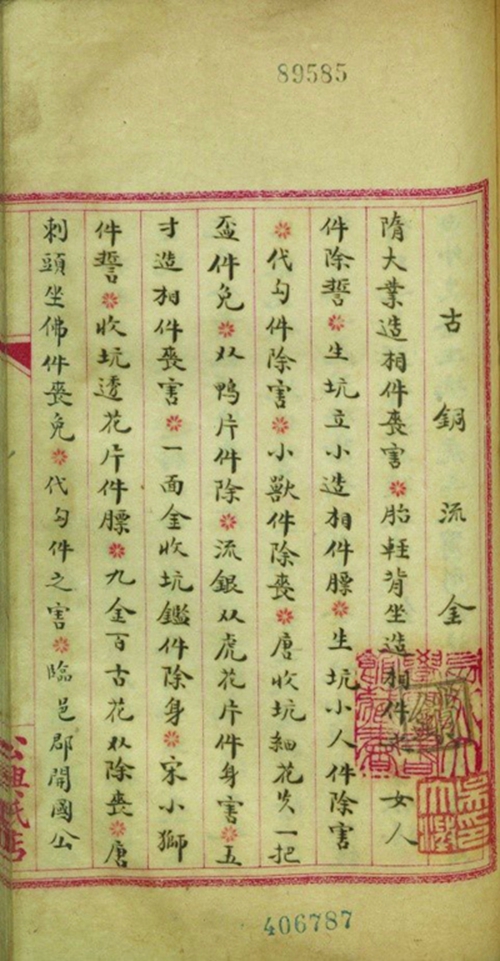 89585
古銅流金
隋大業造相件喪害胎輕背坐造相件女人
件除誓生坑立小造相件膘生坑小人件除害
代勾件除害小獸件除喪唐收坑細花一把
盃件免双鴨片件除流銀双虎花片件身害五
寸造相件喪害一面金收坑鑑件除身宋小獅
件誓收坑透花片件膘九金百古花双除喪唐
刺頭坐佛件喪免代勾件之害臨邑郡開國公
公興紙店
406787